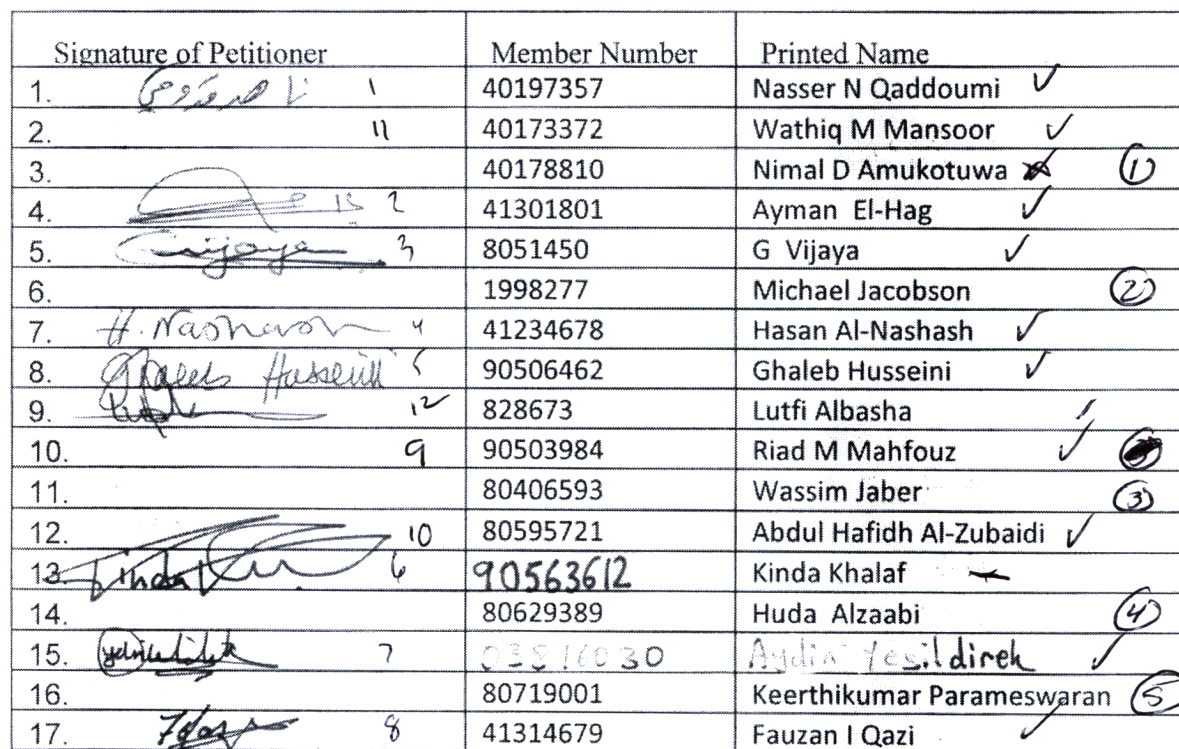 Signature of Petitioner Member Number Printed Name
1. ناصر قدومي 1 40197357 Nasser N Qaddoumi ✓
2. 11 40173372 Wathiq M Mansoor ✓
3. 40178810 Nimal D Amukotuwa ①
4. 2 41301801 Ayman El-Hag ✓
5. Vijaya 3 8051450 G Vijaya ✓
6. 1998277 Michael Jacobson ②
7. H. Nashash 4 41234678 Hasan Al-Nashash ✓
8. Ghaleb Husseini 5 90506462 Ghaleb Husseini ✓
9. 12 828673 Lutfi Albasha
10. 9 90503984 Riad M Mahfouz ✓
11. 80406593 Wassim Jaber ③
12. 10 80595721 Abdul Hafidh Al-Zubaidi ✓
13. Kinda 6 90563612 Kinda Khalaf
14. 80629389 Huda Alzaabi ④
15. 7 03816030 Aydin Yesildirek ✓
16. 80719001 Keerthikumar Parameswaran ⑤
17. 8 41314679 Fauzan I Qazi ✓